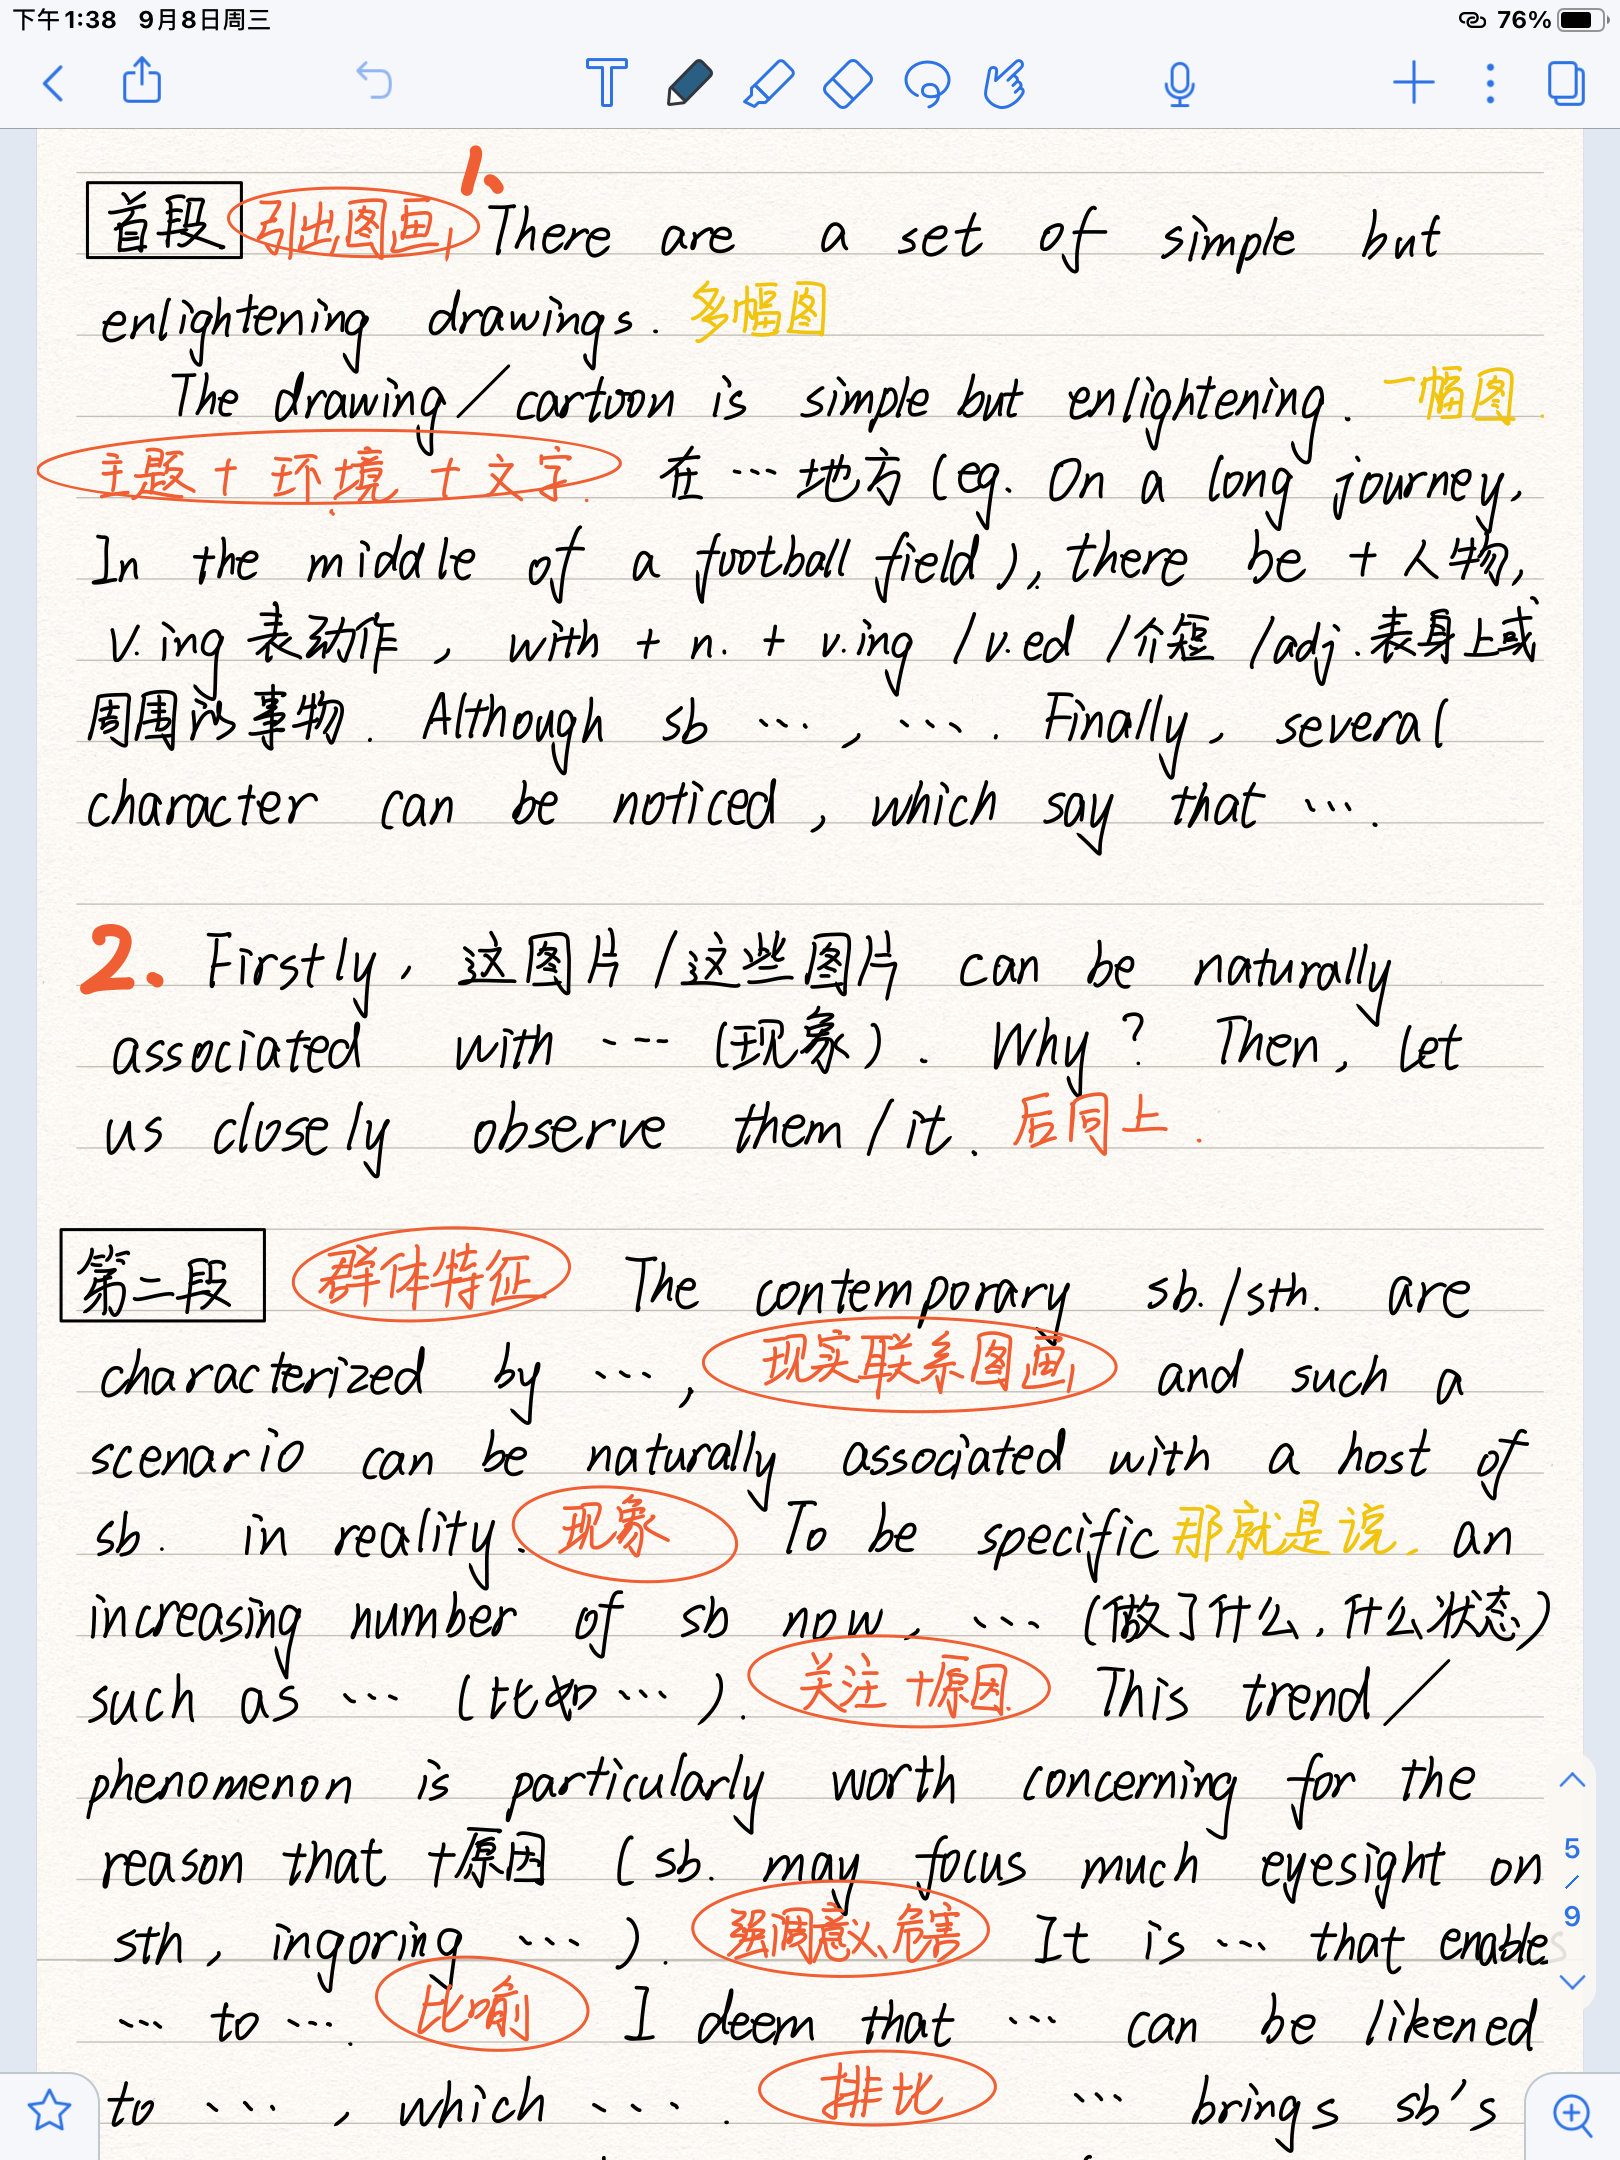 下午1:38 9月8日周三 76%
首段 引出图画 1、There are a set of simple but
enlightening drawings. 多幅图
The drawing/cartoon is simple but enlightening. 一幅图.
主题+环境+文字. 在…地方(eg. On a long journey,
In the middle of a football field), there be + 人物,
v.ing 表动作, with + n. + v.ing /v.ed /介短 /adj.表身上或
周围的事物. Although sb …, …. Finally, several
character can be noticed, which say that ….
2. Firstly, 这图片/这些图片 can be naturally
associated with … (现象). Why? Then, let
us closely observe them/it. 后同上.
第二段 群体特征 The contemporary sb./sth. are
characterized by …, 现实联系图画 and such a
scenario can be naturally associated with a host of
sb. in reality. 现象 To be specific 那就是说. an
increasing number of sb now, … (做了什么,什么状态)
such as … (比如…). 关注+原因. This trend/
phenomenon is particularly worth concerning for the
reason that +原因 (sb. may focus much eyesight on
5
/
9
sth, ingoring …). 强调意义、危害 It is … that enables
… to …. 比喻 I deem that … can be likened
to …, which …. 排比 … brings sb's